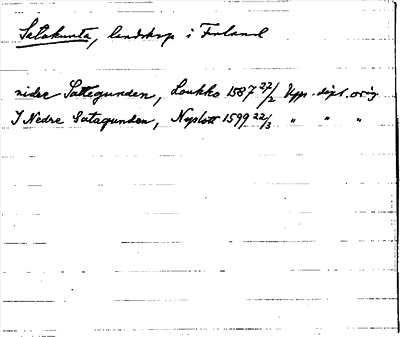 Satakunta, landskap i Finland
nider Sattegunden, Loukko 1587 27/2 Upps. dipl. orig.
I Nedre Satagunden, Nyslott 1599 22/3 " " "